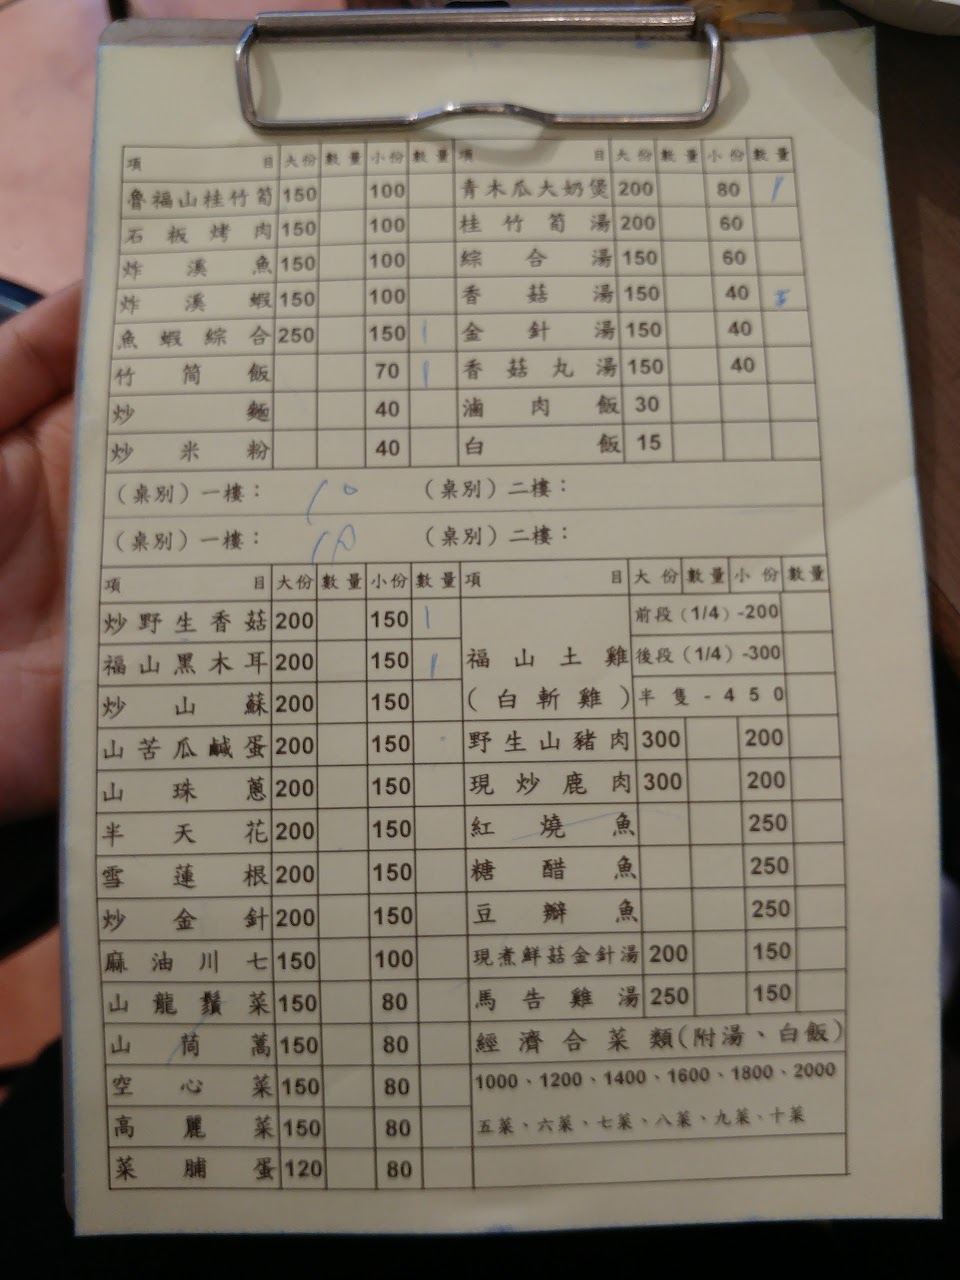 項目 大份 數量 小份 數量 項目 大份 數量 小份 數量
魯福山桂竹筍 150 100 青木瓜大奶煲 200 80 1
石板烤肉 150 100 桂竹筍湯 200 60
炸溪魚 150 100 綜合湯 150 60
炸溪蝦 150 100 香菇湯 150 40
魚蝦綜合 250 150 1 金針湯 150 40
竹筒飯 70 1 香菇丸湯 150 40
炒麵 40 滷肉飯 30
炒米粉 40 白飯 15
(桌別)一樓: 10 (桌別)二樓:
(桌別)一樓: 10 (桌別)二樓:
項目 大份 數量 小份 數量 項目 大份 數量 小份 數量
炒野生香菇 200 150 1 前段(1/4)-200
福山黑木耳 200 150 1 福山土雞 後段(1/4)-300
炒山蘇 200 150 (白斬雞) 半隻-450
山苦瓜鹹蛋 200 150 野生山豬肉 300 200
山珠蔥 200 150 現炒鹿肉 300 200
半天花 200 150 紅燒魚 250
雪蓮根 200 150 糖醋魚 250
炒金針 200 150 豆瓣魚 250
麻油川七 150 100 現煮鮮菇金針湯 200 150
山龍鬚菜 150 80 馬告雞湯 250 150
山茼蒿 150 80 經濟合菜類(附湯、白飯)
空心菜 150 80 1000、1200、1400、1600、1800、2000
高麗菜 150 80 五菜、六菜、七菜、八菜、九菜、十菜
菜脯蛋 120 80